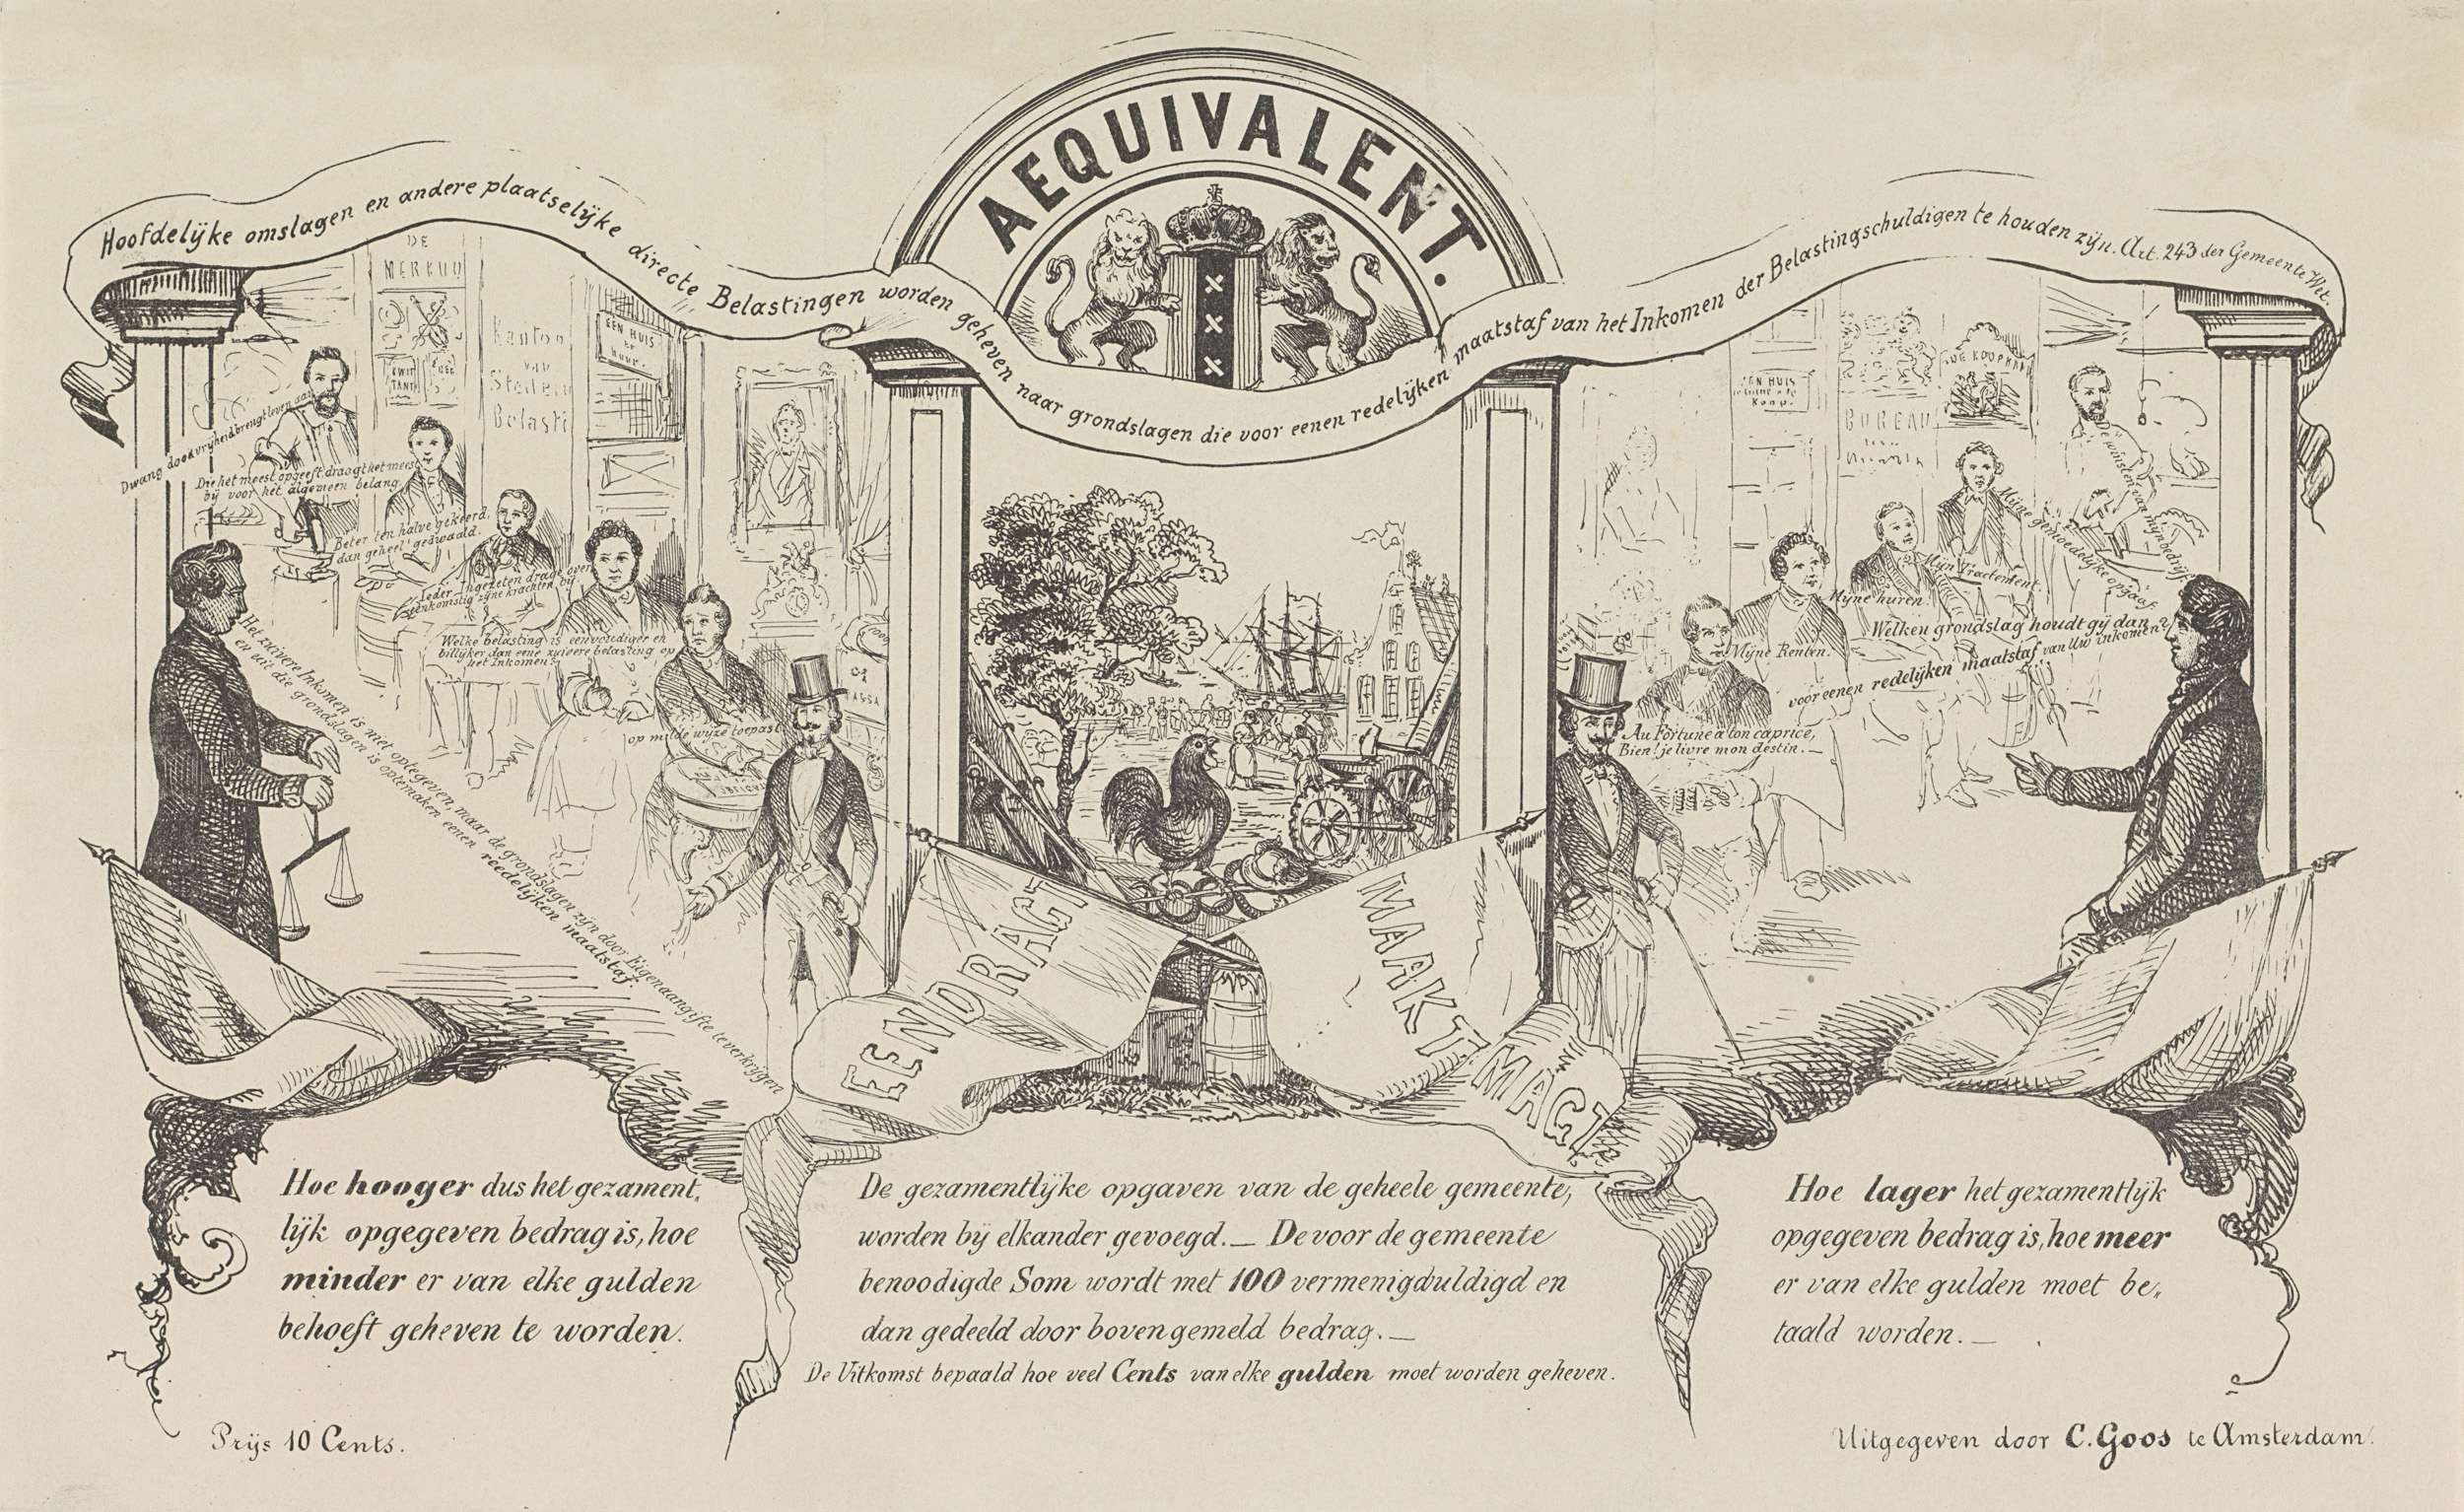 AEQUIVALENT.
Hoofdelijke omslagen en andere plaatselijke directe Belastingen worden geheven naar grondslagen die voor eenen redelijken maatstaf van het Inkomen der Belastingschuldigen te houden zijn. Art. 243 der Gemeente Wet.
DE
MERKUU
KWIT
TANTI
Kantoo
van
Stede
Belasti
EEN HUIS
te
huur.
Dwang doodt vrijheid brengt leven aan
Die het meest opgeeft draagt het meest
bij voor het algemeen belang.
Beter ten halve gekeerd,
dan geheel gedwaald.
Ieder Ingezeten drage over
eenkomstig zijne krachten bij
Welke belasting is eenvoudiger en
billijker dan eene zuivere belasting op
het Inkomen?
op milde wijze toepast
Het zuivere Inkomen is niet optegeven, maar de grondslagen zijn door Eigenaangifte te verkrijgen
en uit die grondslagen is optemaken eenen reedelijken maatstaf.
CASSA
EEN HUIS
Koop.
BUREAU
van
DE KOOPH
De winsten van mijn bedrijf
Mijne gemoedelijke opgaaf
Mijn Tractement.
Mijne huren.
Mijne Renten.
Welken grondslag houdt gij dan
voor eenen redelijken maatstaf van Uw inkomen?
Au Fortune à ton caprice,
Bien! je livre mon destin._
EENDRAGT
MAAKT MAGT
Hoe hooger dus het gezament,
lijk opgegeven bedrag is, hoe
minder er van elke gulden
behoeft geheven te worden.
De gezamentlijke opgaven van de geheele gemeente,
worden bij elkander gevoegd._ De voor de gemeente
benoodigde Som wordt met 100 vermenigvuldigd en
dan gedeeld door boven gemeld bedrag._
De Uitkomst bepaald hoe veel Cents van elke gulden moet worden geheven.
Hoe lager het gezamentlijk
opgegeven bedrag is, hoe meer
er van elke gulden moet be,
taald worden._
Prijs 10 Cents.
Uitgegeven door C. Goos te Amsterdam.